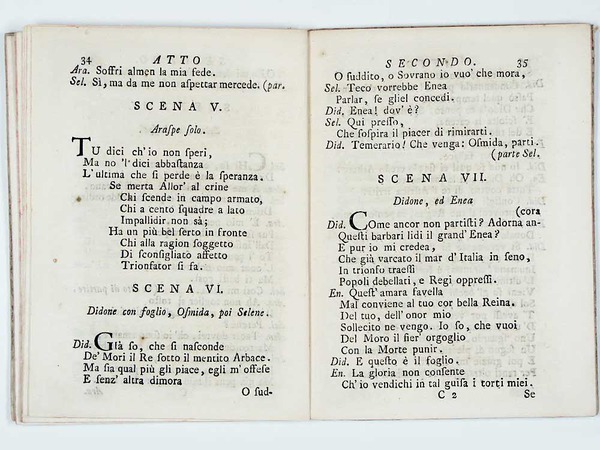 34 ATTO
Ara. Soffri almen la mia fede.
Sel. Sì, ma da me non aspettar mercede. (par.
SCENA V.
Araspe solo.
TU dici ch'io non speri,
Ma no 'l dici abbastanza
L'ultima che si perde è la speranza.
Se merta Allor' al crine
Chi scende in campo armato,
Chi a cento squadre a lato
Impallidir non sà;
Ha un più bel serto in fronte
Chi alla ragion soggetto
Di sconsigliato affetto
Trionfator si fa.
SCENA VI.
Didone con foglio, Osmida, poi Selene.
Did. GIà so, che si nasconde
De' Mori il Re sotto il mentito Arbace.
Ma sia qual più gli piace, egli m'offese
E senz' altra dimora
O sud-
SECONDO. 35
O suddito, o Sovrano io vuo' che mora,
Sel. Teco vorrebbe Enea
Parlar, se gliel concedi.
Did. Enea! dov' è?
Sel. Qui presso,
Che sospira il piacer di rimirarti.
Did. Temerario! Che venga: Osmida, parti.
(parte Sel.
SCENA VII.
Didone, ed Enea
(cora
Did. COme ancor non partisti? Adorna an-
Questi barbari lidi il grand' Enea?
E pur io mi credea,
Che già varcato il mar d'Italia in seno,
In trionfo traessi
Popoli debellati, e Regi oppressi.
En. Quest' amara favella
Mal conviene al tuo cor bella Reina.
Del tuo, dell' onor mio
Sollecito ne vengo. Io so, che vuoi
Del Moro il fier' orgoglio
Con la Morte punir.
Did. E questo è il foglio.
En. La gloria non consente
Ch' io vendichi in tal guisa i torti miei.
C 2 Se